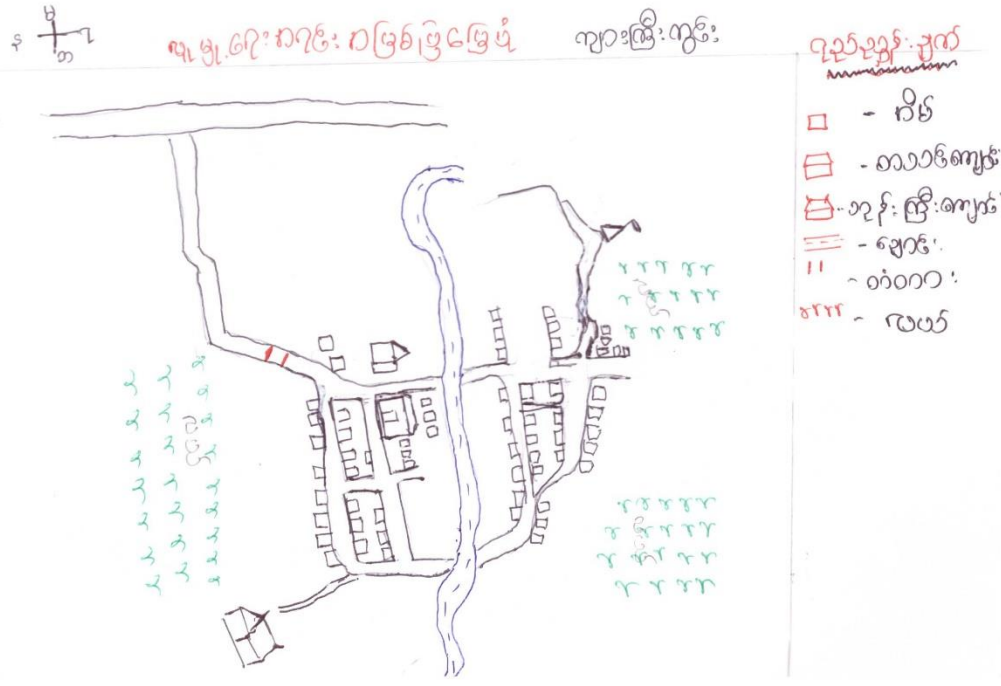 မ
န
လ
တ
လူမှုရေးအရင်းအမြစ်ပြမြေပုံ
ကျားကြီးကွင်း
ရည်ညွှန်းချက်
- အိမ်
- စာသင်ကျောင်း
- ဘုန်းကြီးကျောင်း
- ချောင်း
- တံတား
- လယ်
လယ်
လယ်
လယ်